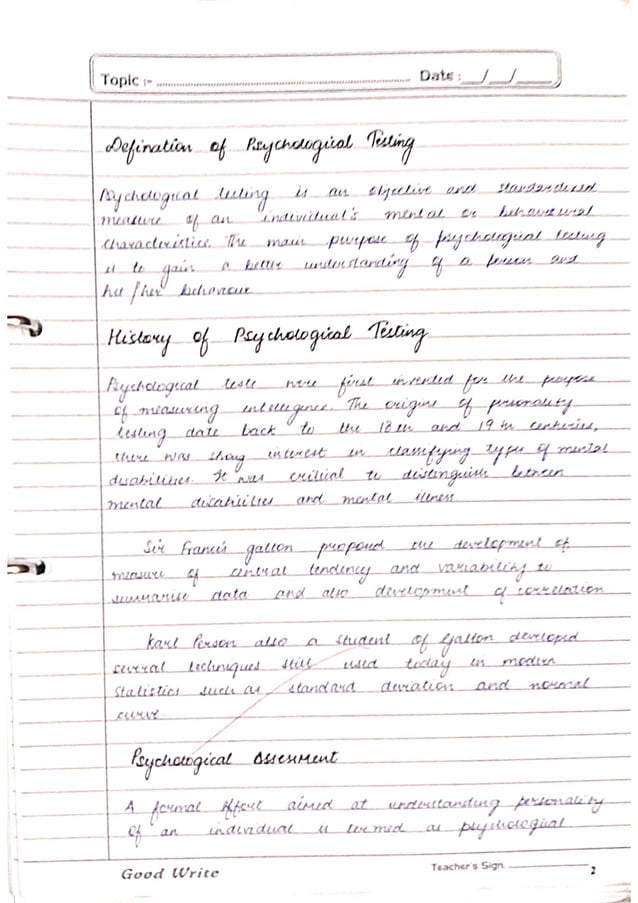 Topic :- Date : __/__/__
Defination of Psychological Testing
Psychological testing is an objective and standardized
measure of an individual's mental or behavioural
characteristics. The main purpose of psychological testing
is to gain a better understanding of a person and
his/her behaviour
History of Psychological Testing
Psychological tests were first invented for the purpose
of measuring intelligence. The origins of personality
testing date back to the 18th and 19th centuries,
there was stong interest in classifying types of mental
disabilities. It was critical to distinguish between
mental disabilities and mental illness
Sir Francis galton propond the development of
measure of central tendency and variability to
summarise data and also development of correlation
Karl Person also a student of Galton developed
several techniques still used today in modern
statistics such as standard deviation and normal
curve.
Psychological Assesment
A formal effort aimed at understanding personality
of an individual is termed as psychological
Good Write Teacher's Sign 2